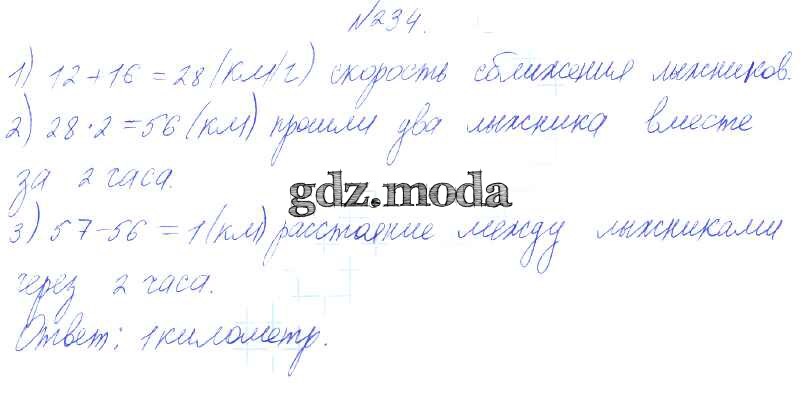 №234.
1) 12+16=28 (км/ч) скорость сближения лыжников.
2) 28·2=56 (км) прошли два лыжника вместе
за 2 часа.
gdz.moda
3) 57-56=1 (км) расстояние между лыжниками
через 2 часа.
Ответ: 1 километр.